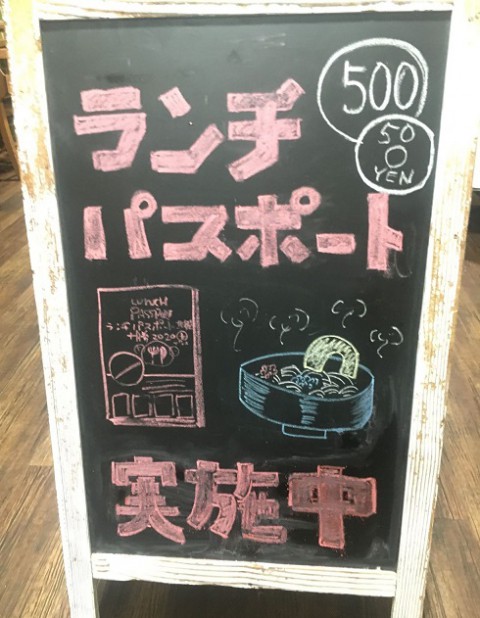 ランチ
500
50
0
YEN
パスポート
LUNCH
PASSPORT
ランチパスポート
2020
実施中